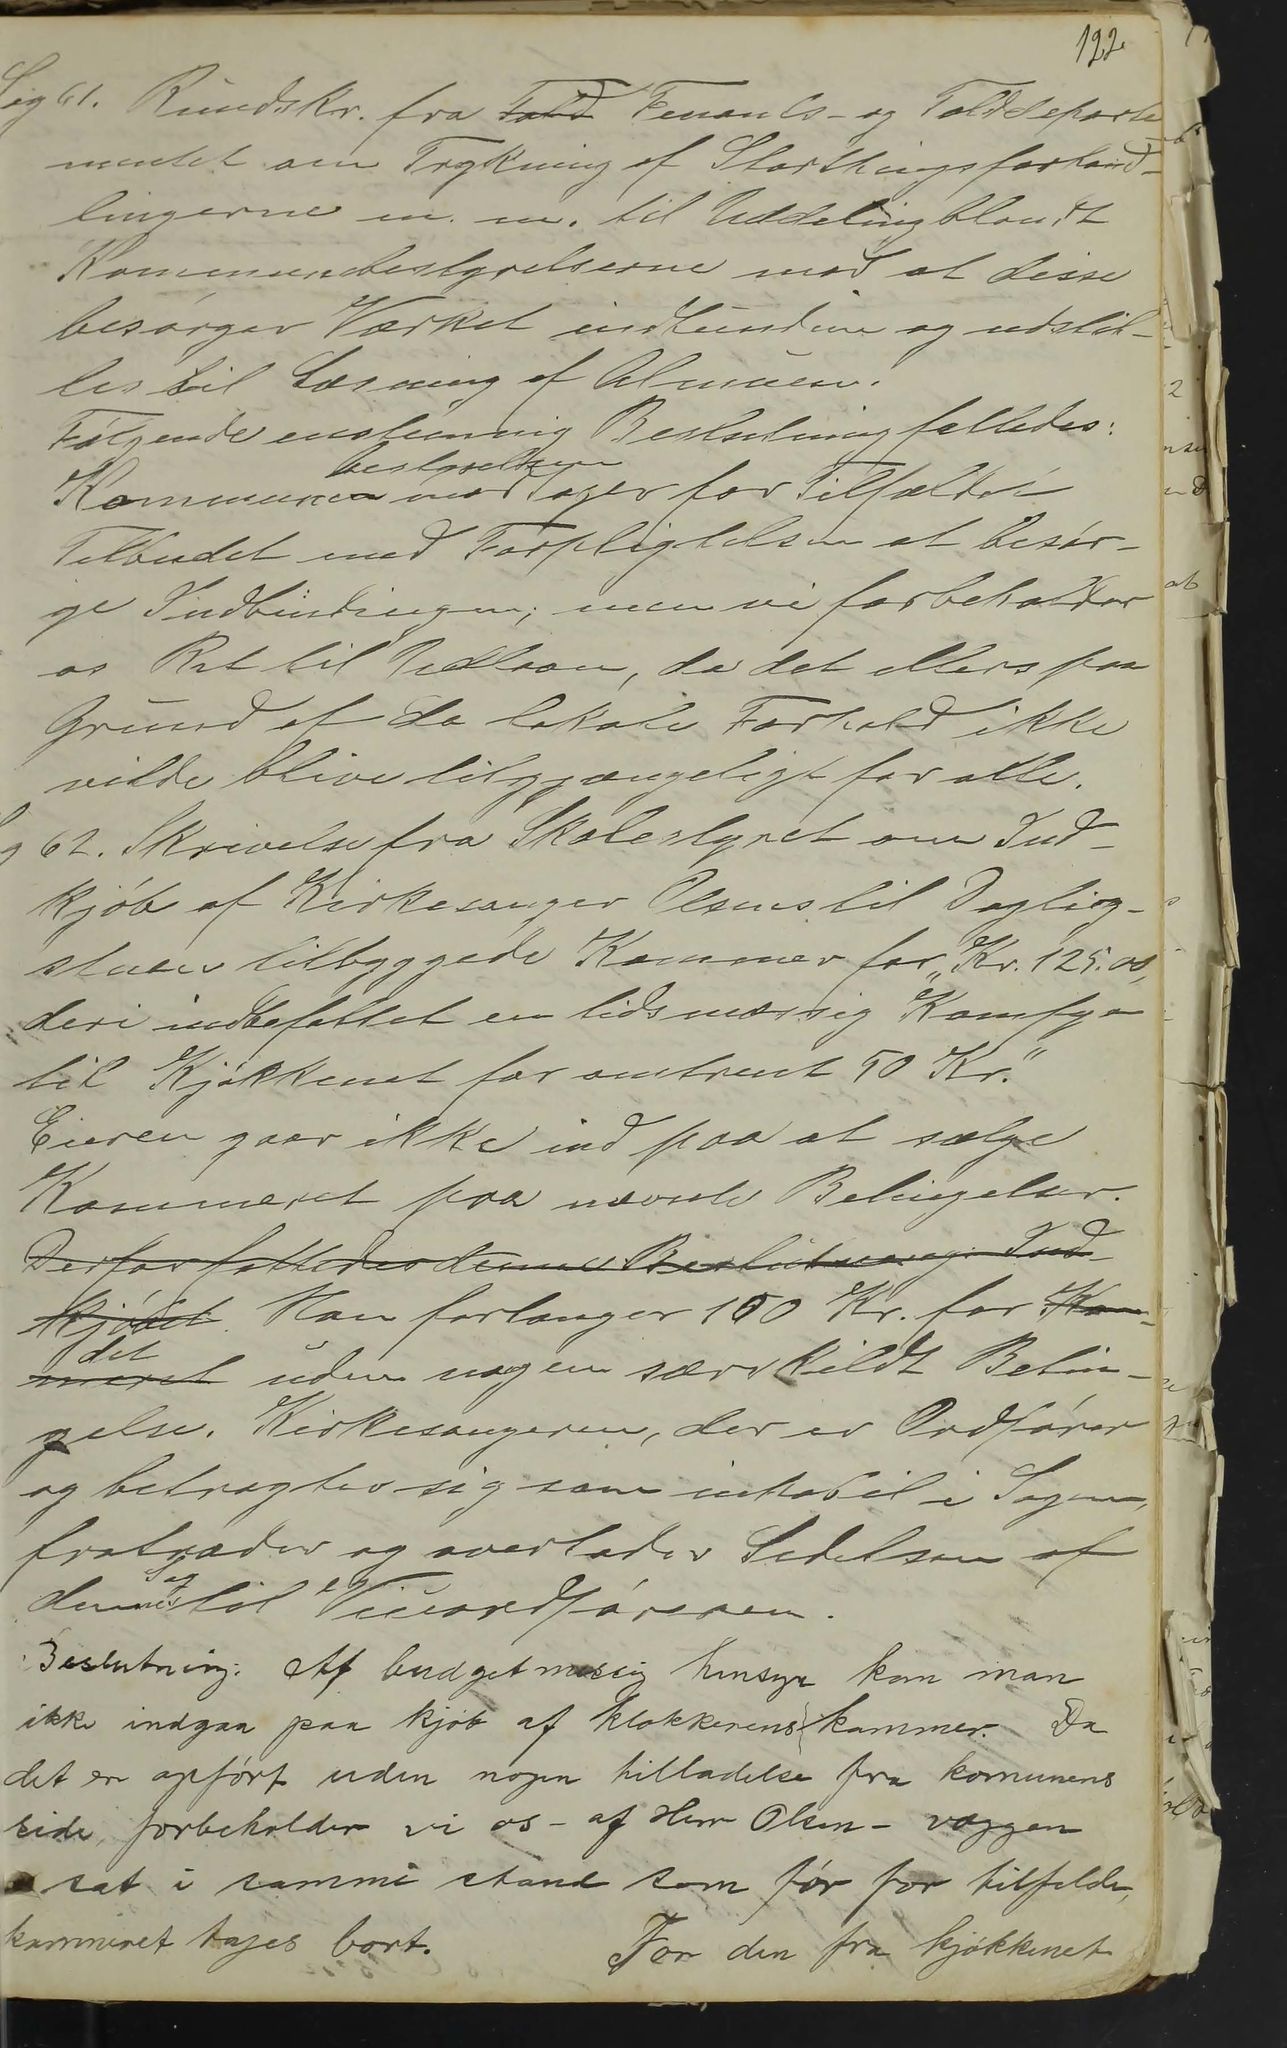 122
Sag 61. Rundskr. fra Told Fenants- og Tolddeparte-
mentet om Trykning af Storthingsforhand-
lingerne m. m. til Uddeling blandt
Kommunebestyrelserne mod at disse
besørger Værket indbundne og udstil-
les til Læsning af Almuen.
Følgende enstemmig Beslutning fattedes:
bestyrelsen
Kommunen modtager for Tilfældet
Tilbudet med Forpligtelsen at besør-
ge Indbindingen; men vi forbeholder
os Ret til Udlaan, da det ellers paa
Grund af de lokale Forhold ikke
vilde blive tilgjængeligt for alle.
g 62. Skrivelse fra Skolestyret om Ind-
kjøb af Kirkesanger Olsens til Daglig-
stuen tilbyggede Kammer for „Kr. 125.00,
deri indbefattet en tidsmæssig Komfyr
til Kjøkkenet for omtrent 50 Kr."
Eieren gaar ikke ind paa at sælge
Kammeret paa nævnte Betingelser.
Derfor fattedes denne Beslutning: Ind-
kjøbet. Han forlanger 100 Kr. for Kam-
det
meret uden nogen særskildt Betin-
gelse. Kirkesangeren, der er Ordfører
og betragter sig som inhabil i Sagen,
fratræder og overlader Ledelsen af
Sag
denne til Viceordføreren.
Beslutning: Af budgetmessig hensyn kan man
ikke indgaa paa kjøb af klokkerens kammer. Da
det er opført uden nogen tilladelse fra komunens
side, forbeholder vi os - af Herr Olsen - væggen
sat i samme stand som før for tilfelde,
kammeret tages bort. For den fra kjøkkenet